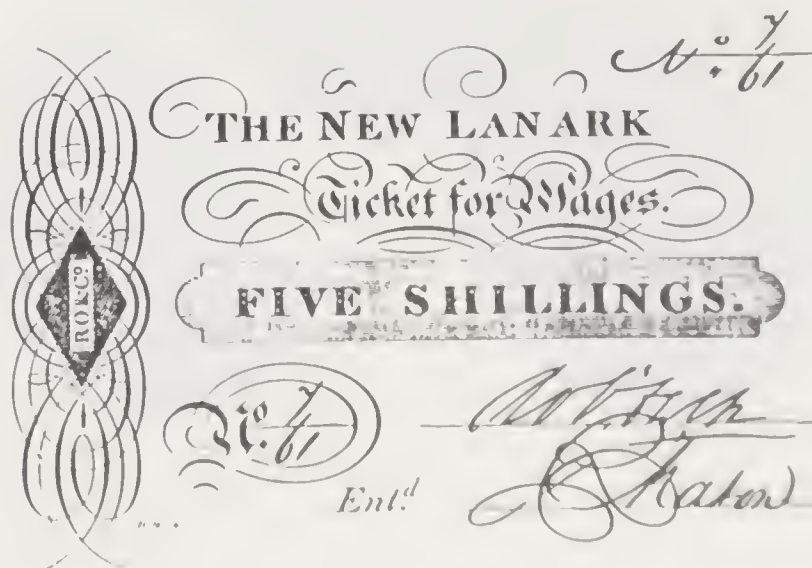 No. 7/61
THE NEW LANARK
Ticket for Wages.
FIVE SHILLINGS.
R O & Co
No. 7/61
Ent.d